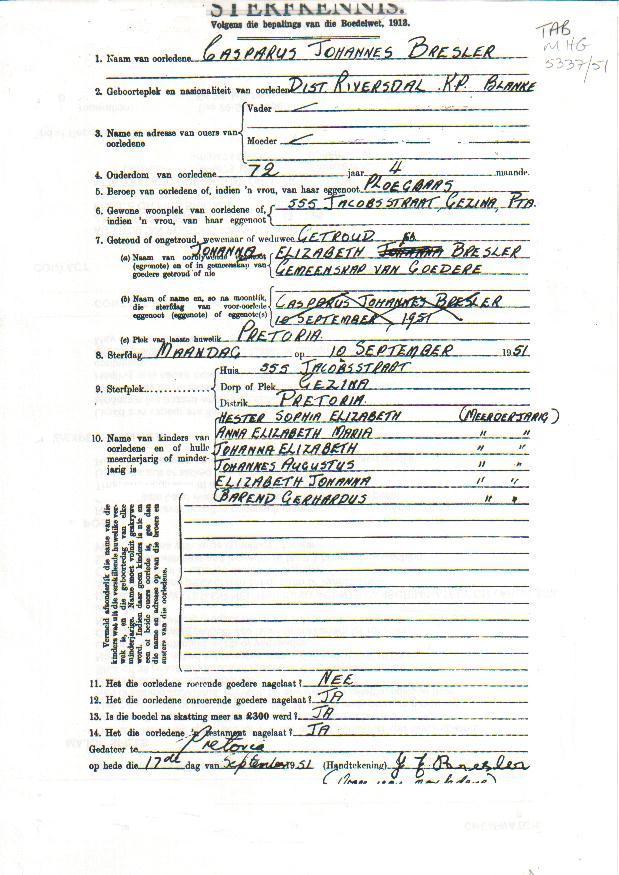 STERFKENNIS.
Volgens die bepalings van die Boedelwet, 1913.
TAB
MHG
5337/51
1. Naam van oorledene CASPARUS JOHANNES BRESLER
2. Geboorteplek en nasionaliteit van oorledene DIST. RIVERSDAL K.P. BLANKE
3. Name en adresse van ouers van oorledene
Vader
Moeder
4. Ouderdom van oorledene 72 jaar 4 maande.
5. Beroep van oorledene of, indien 'n vrou, van haar eggenoot PLOEGBAAS
6. Gewone woonplek van oorledene of, indien 'n vrou, van haar eggenoot 555 JACOBSSTRAAT, GEZINA, PTA.
7. Getroud of ongetroud, wewenaar of weduwee GETROUD
(a) Naam van oorblywende eggenoot (eggenote) en of in gemeenskap van goedere getroud of nie
JOHANNA ELIZABETH JOHANNA BRESLER
GEMEENSKAP VAN GOEDERE
(b) Naam of name en, so na moontlik, die sterfdag van voor-oorlede eggenoot (eggenote) of eggenote(s)
CASPARUS JOHANNES BRESLER
10 SEPTEMBER, 1951
(c) Plek van laaste huwelik PRETORIA
8. Sterfdag MAANDAG op 10 SEPTEMBER 1951
9. Sterfplek
Huis 555 JACOBSSTRAAT
Dorp of Plek GEZINA
Distrik PRETORIA
10. Name van kinders van oorledene en of hulle meerderjarig of minderjarig is
HESTER SOPHIA ELIZABETH (MEERDERJARIG)
ANNA ELIZABETH MARIA " "
JOHANNA ELIZABETH " "
JOHANNES AUGUSTUS " "
ELIZABETH JOHANNA " "
BAREND GERHARDUS " "
Vermeld afsonderlik die name van die kinders wat uit die verskillende huwelike verwek is, en die geboortedag van elke minderjarige. Name moet voluit geskrywe word. Indien daar geen kinders is nie en een of beide ouers oorlede is, gee dan die name en adresse op van die broers en susters van die oorledene.
11. Het die oorledene roerende goedere nagelaat? NEE
12. Het die oorledene onroerende goedere nagelaat? JA
13. Is die boedel na skatting meer as £300 werd? JA
14. Het die oorledene 'n testament nagelaat? JA
Gedateer te Pretoria
op hede die 17de dag van September 1951 (Handtekening) Bresler